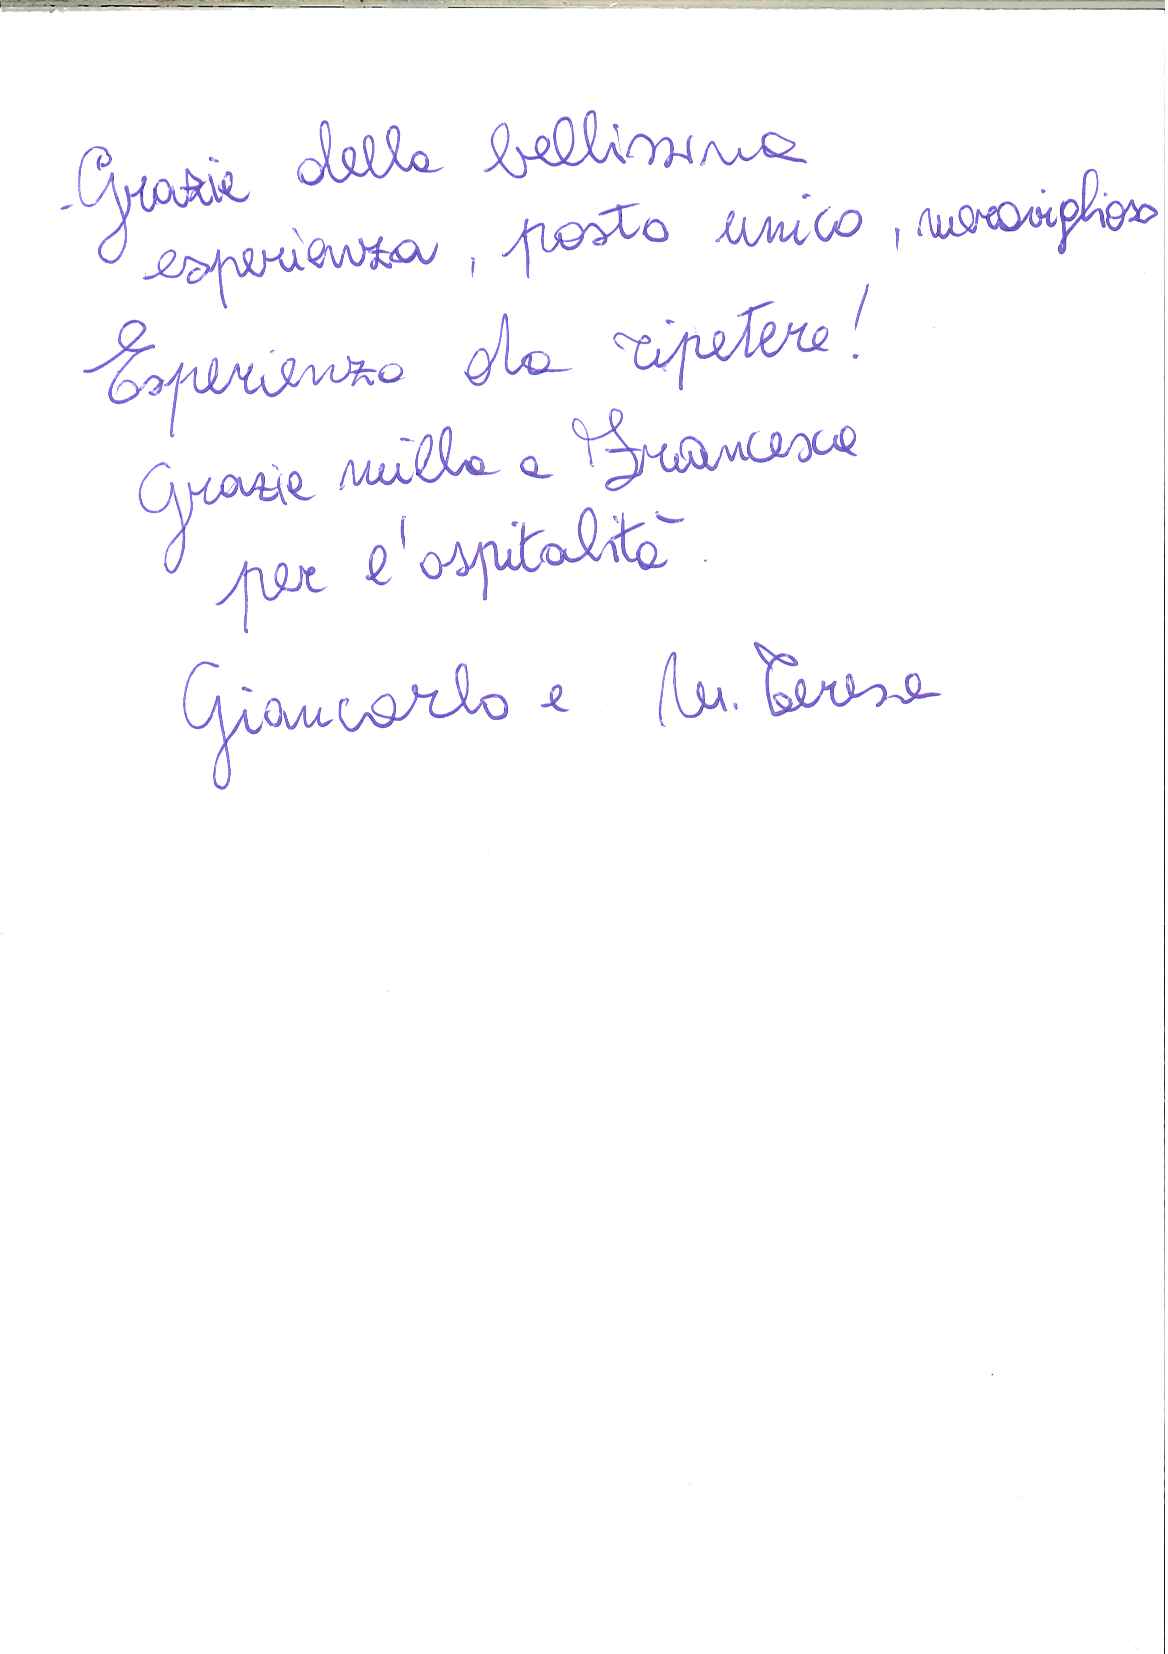 - Grazie della bellissima
esperienza, posto unico, meraviglioso
Esperienza da ripetere!
Grazie mille a Francesca
per l'ospitalità
Giancarlo e M. Teresa